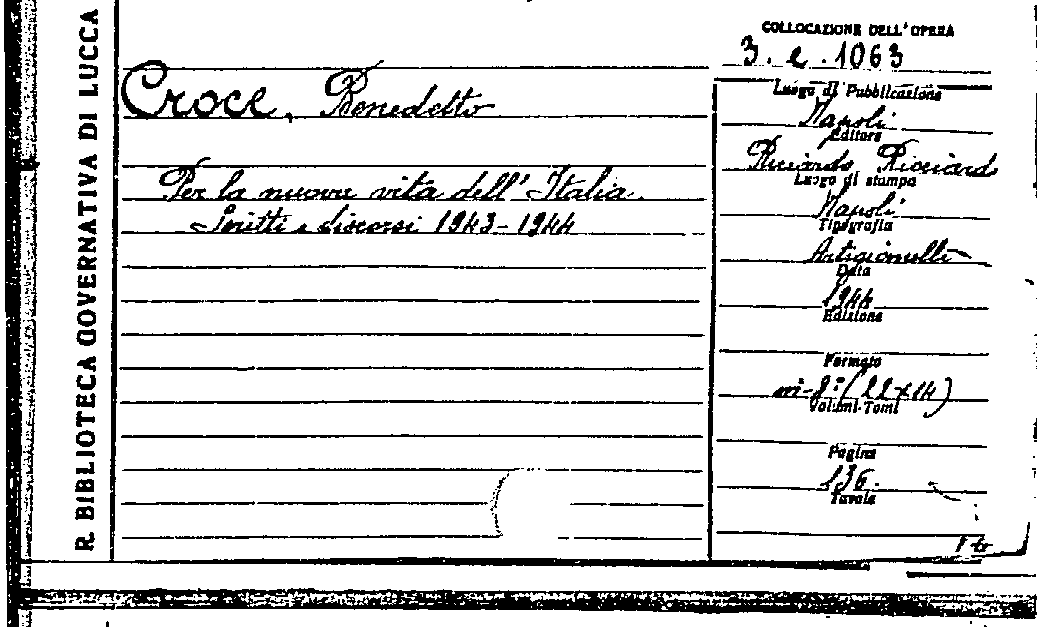 R. BIBLIOTECA GOVERNATIVA DI LUCCA
Croce, Benedetto
Per la nuova vita dell'Italia.
Scritti e discorsi 1943-1944
COLLOCAZIONE DELL'OPERA
3. e. 1063
Luogo di Pubblicazione
Napoli
Editore
Riccardo Ricciardi
Luogo di stampa
Napoli
Tipografia
Artigianelli
Data
1944
Edizione
Formato
in-8° (22x14)
Volumi-Tomi
Pagine
136.
Tavole